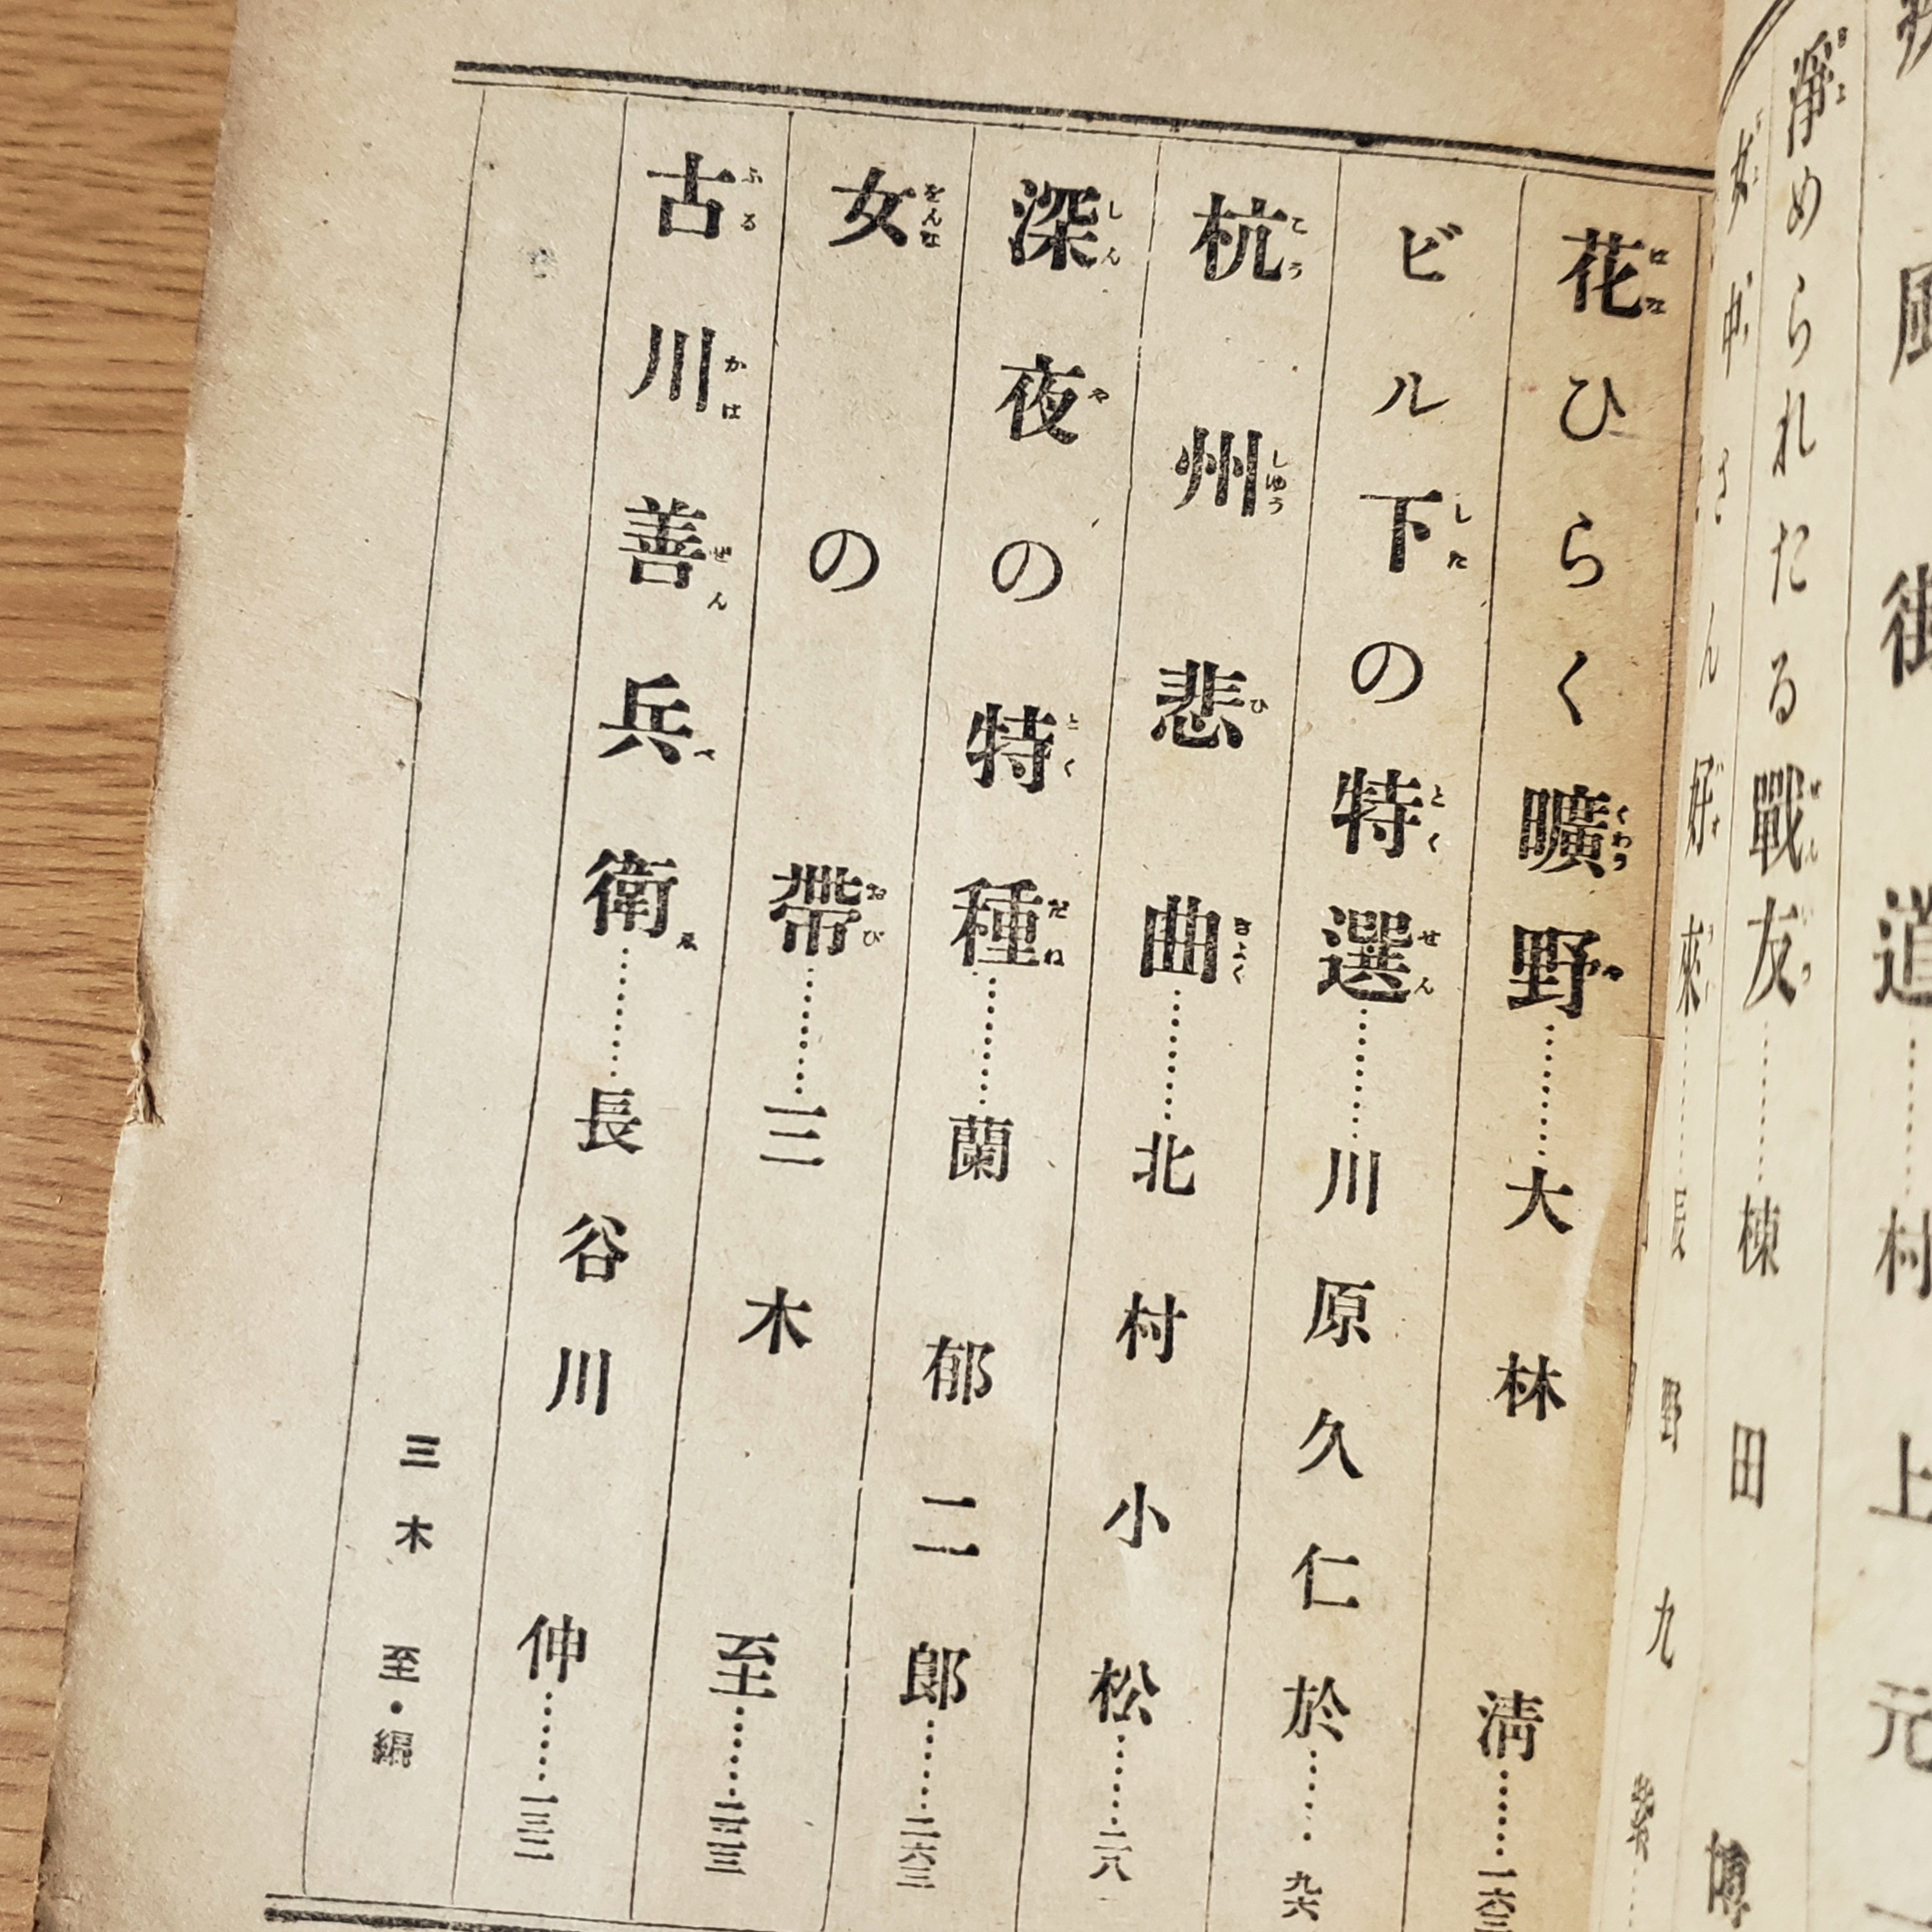 風街道………村上元
淨められたる戰友………棟田博
花ひらく曠野………大林清………一六三
ビル下の特選………川原久仁於………九六
杭州悲曲………北村小松………
深夜の特種………蘭郁二郎………二六三
女の帶………三木至………
古川善兵衛………長谷川伸………一三二
三木至・編